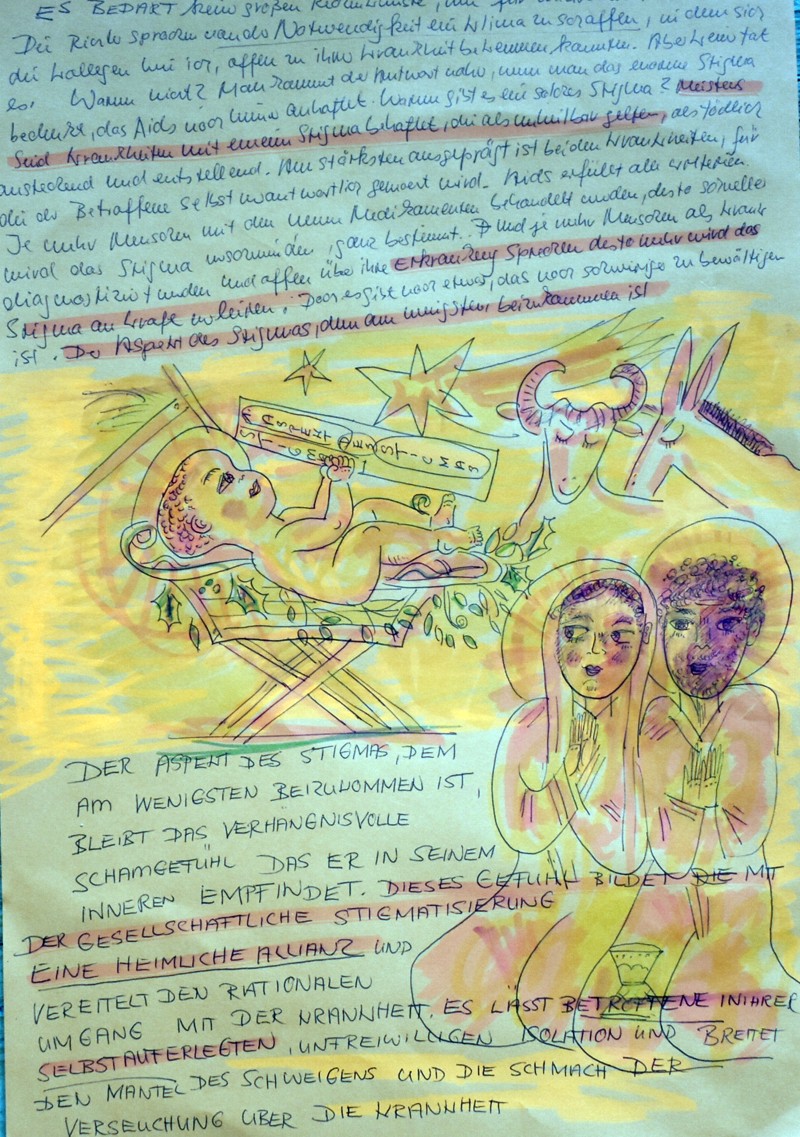 ES BEDARF keiner großen
Die Richter sprachen von der Notwendigkeit ein Klima zu schaffen, in dem sich
die Kollegen wie ich, offen zu ihrer Krankheit bekennen konnten. Aber keiner tat
es. Warum nicht? Man kommt der Antwort nahe, wenn man das enorme Stigma
bedenkt, das Aids noch immer anhaftet. Warum gibt es ein solches Stigma? Meistens
sind Krankheiten mit einem Stigma behaftet, die als unheilbar gelten, als tödlich
ansteckend und entstellend. Am stärksten ausgeprägt ist bei den Krankheiten, für
die der Betroffene selbst verantwortlich gemacht wird. Aids erfüllt alle Kriterien.
Je mehr Menschen mit den neuen Medikamenten behandelt werden, desto schneller
wird das Stigma verschwinden, ganz bestimmt. Und je mehr Menschen als krank
diagnostiziert werden und offen über ihre Erkrankung sprechen desto mehr wird das
Stigma an Kraft verlieren. Doch es gibt noch etwas, das noch schwieriger zu bewältigen
ist. Der Aspekt des Stigmas, dem am wenigsten beizukommen ist
DER ASPEKT DES STIGMAS, DEM
AM WENIGSTEN BEIZUKOMMEN IST,
BLEIBT DAS VERHÄNGNISVOLLE
SCHAMGEFÜHL DAS ER IN SEINEM
INNEREN EMPFINDET. DIESES GEFÜHL BILDET DIE MIT
DER GESELLSCHAFTLICHE STIGMATISIERUNG
EINE HEIMLICHE ALLIANZ UND
VEREITELT DEN RATIONALEN
UMGANG MIT DER KRANKHEIT. ES LÄSST BETROFFENE IN IHRER
SELBSTAUFERLEGTEN, UNFREIWILLIGEN ISOLATION UND BREITET
DEN MANTEL DES SCHWEIGENS UND DIE SCHMACH DER
VERSEUCHUNG ÜBER DIE KRANKHEIT